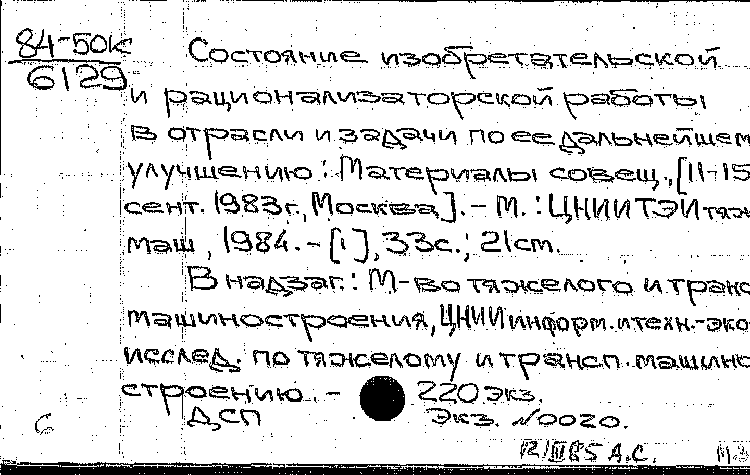 84-50к
6129
Состояние изобретательской
и рационализаторской работы
в отрасли и задачи по ее дальнейшем
улучшению: Материалы совещ., [11-15
сент. 1983г., Москва]. - М.: ЦНИИТЭИтяж
маш, 1984. - [1], 33с.; 21см.
В надзаг.: М-во тяжелого и транс
машиностроения, ЦНИИ информ. и техн.-эко
исслед. по тяжелому и трансп. машино
строению. - 220 экз.
ДСП Экз. №0020.
12/III 85 А.С.